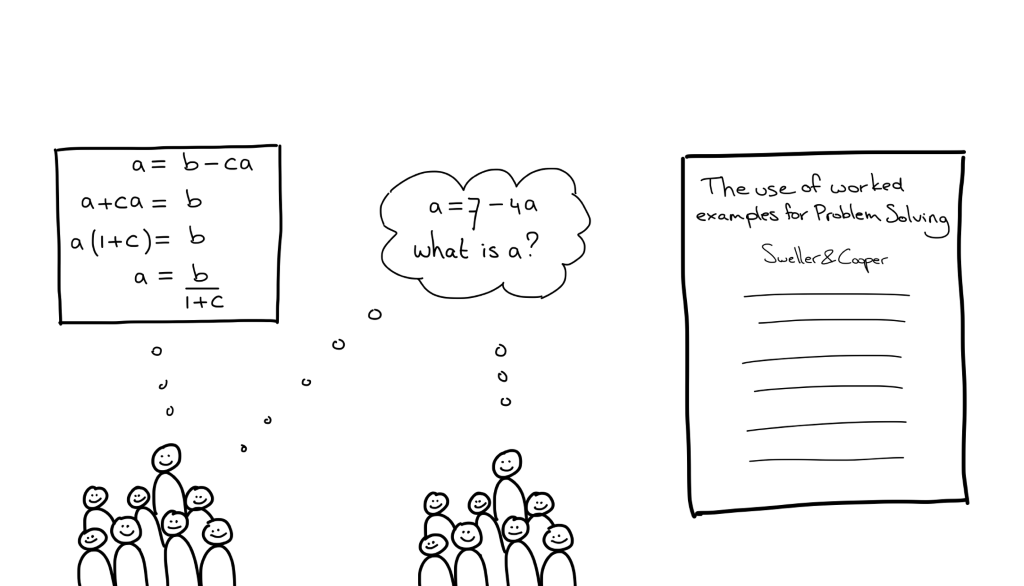 a = b - ca
a + ca = b
a(1+c) = b
a = b
1+c
a = 7 - 4a
what is a?
The use of worked
examples for Problem Solving
Sweller & Cooper